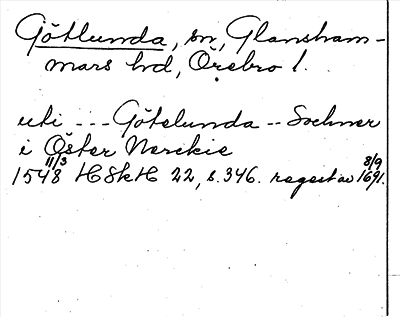 Götlunda, sn, Glansham-
mars hd, Örebro l.
uti --- Götelunda -- Sochner
i Öster Nerckie
11/3 8/9
1548 HSkH 22, s. 346. regest av 1691.